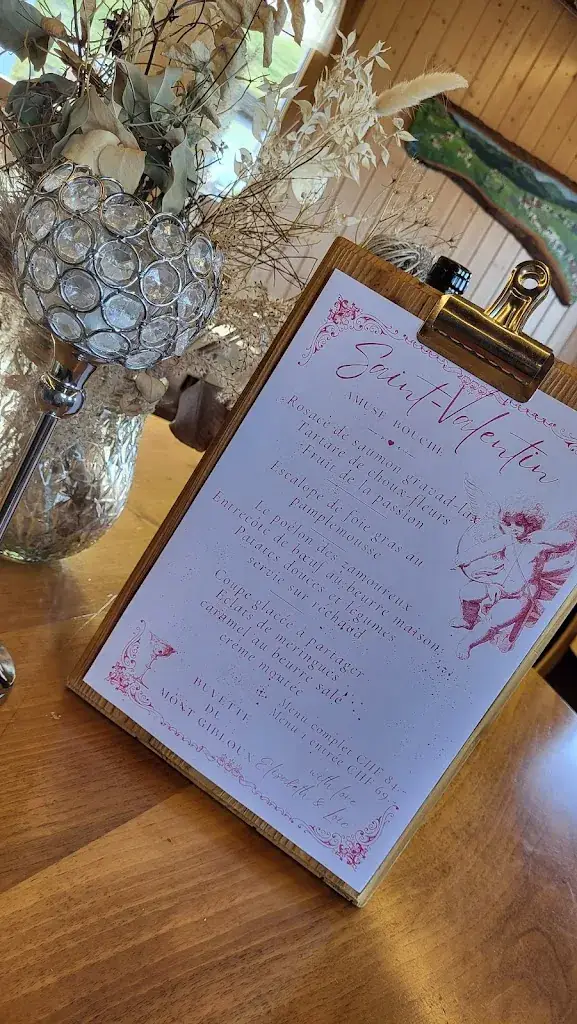 Saint-Valentin
AMUSE BOUCHE
Rosace de saumon gravad-lax
Tartare de choux-fleurs
Fruit de la Passion
Escalope de foie gras au
Pamplemousse
Le poêlon des zamoureux
Entrecôte de bœuf au beurre maison
Patates douces et légumes
servie sur réchaud
Coupe glacée à partager
Eclats de meringues
caramel au beurre salé
crème moulée
Menu complet CHF 84.-
Menu 1 entrée CHF 69.-
BUVETTE
DU
MONT GIBLOUX
with love
Elisabeth &